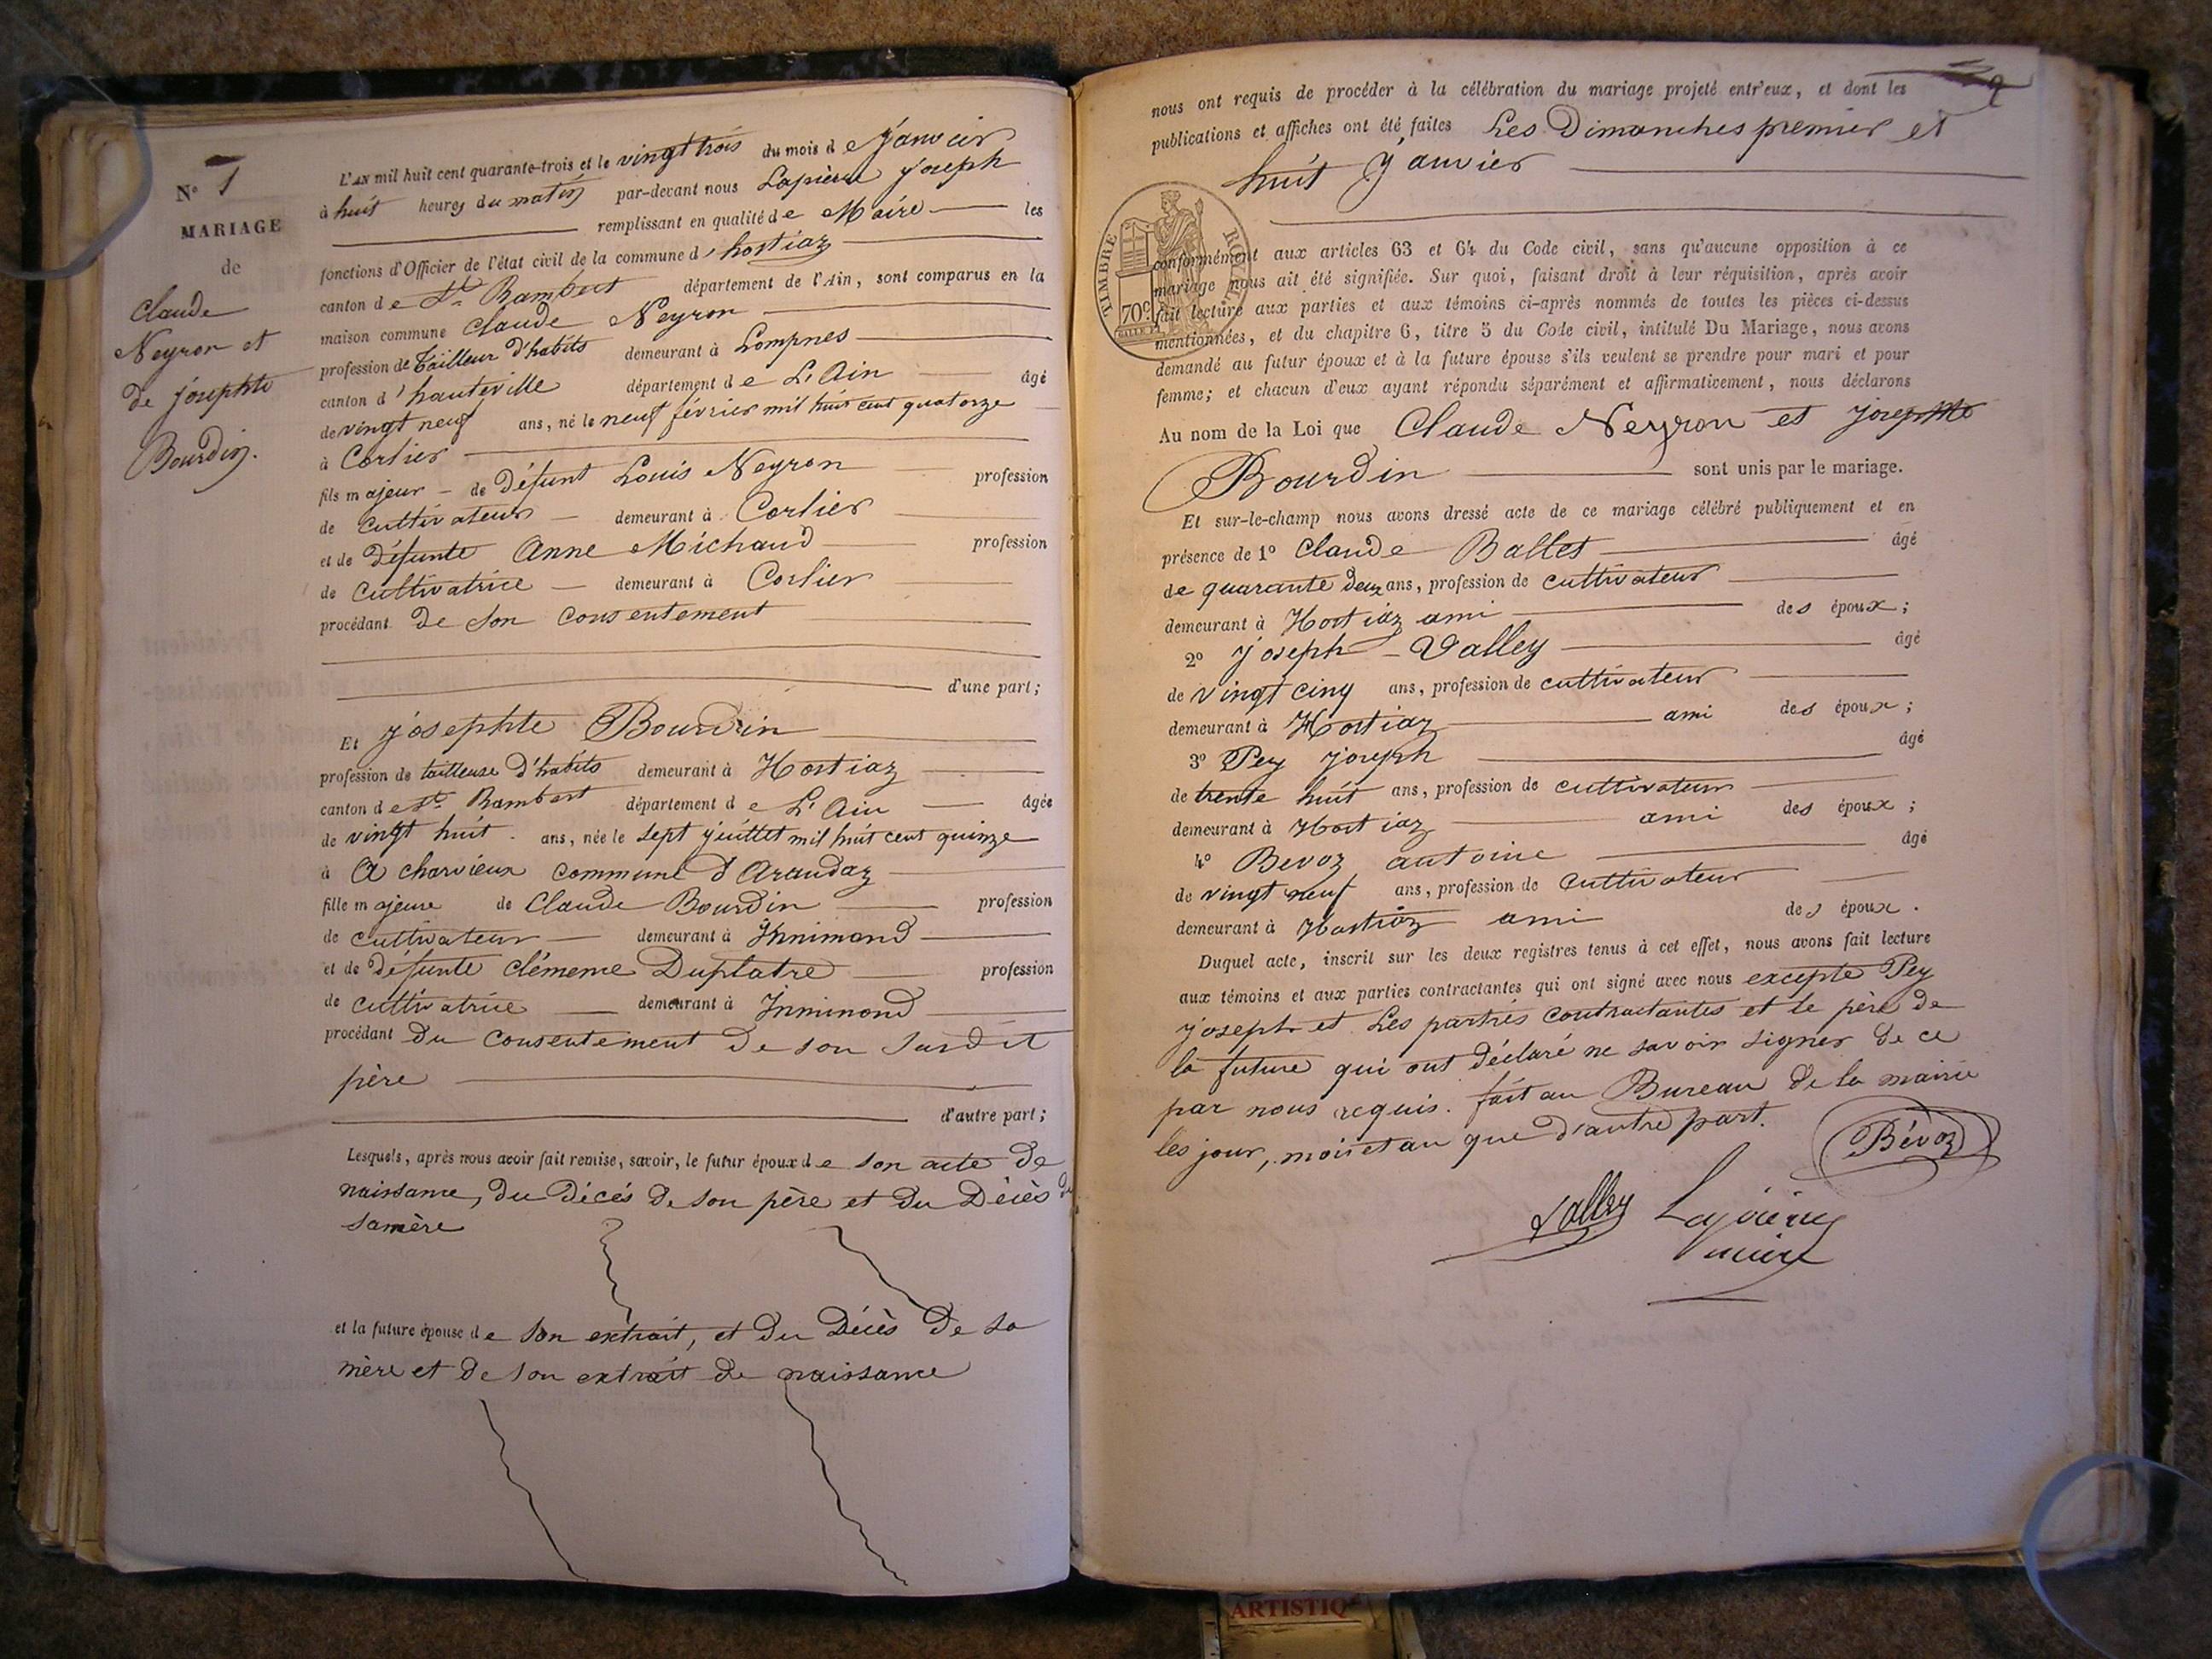 N° 1
MARIAGE
de
Claude
Neyron et
de josephte
Bourdin.
L'AN mil huit cent quarante-trois et le vingt trois du mois de Janvier
à huit heures du matin par-devant nous Lapierre joseph
remplissant en qualité de Maire les
fonctions d'Officier de l'état civil de la commune d'hostiaz
canton de St Rambert département de l'Ain, sont comparus en la
maison commune Claude Neyron
profession de Tailleur d'habits demeurant à Lompnes
canton d'hauteville département de L'Ain âgé
de vingt neuf ans, né le neuf février mil huit cent quatorze
à Corlier
fils majeur de Défunt Louis Neyron profession
de cultivateur demeurant à Corlier
et de Défunte Anne Michaud profession
de cultivatrice demeurant à Corlier
procédant de son consentement
d'une part;
Et josephte Bourdin
profession de tailleuse d'habits demeurant à Hostiaz
canton de St Rambert département de L'Ain âgée
de vingt huit ans, née le sept juillet mil huit cent quinze
à A charvieux commune d'Arandaz
fille majeure de Claude Bourdin profession
de cultivateur demeurant à Innimond
et de Défunte Clémence Duplatre profession
de cultivatrice demeurant à Innimond
procédant Du consentement de son susdit
père
d'autre part;
Lesquels, après nous avoir fait remise, savoir, le futur époux de son acte de
naissance, du décés de son père et du Décès de
sa mère
et la future épouse de son extrait, et du Décès de sa
mère et de son extrait de naissance
2
nous ont requis de procéder à la célébration du mariage projeté entr'eux, et dont les
publications et affiches ont été faites Les Dimanches premier et
huit Janvier
TIMBRE ROYAL
70c
conformément aux articles 63 et 64 du Code civil, sans qu'aucune opposition à ce
mariage nous ait été signifiée. Sur quoi, faisant droit à leur réquisition, après avoir
fait lecture aux parties et aux témoins ci-après nommés de toutes les pièces ci-dessus
mentionnées, et du chapitre 6, titre 5 du Code civil, intitulé Du Mariage, nous avons
demandé au futur époux et à la future épouse s'ils veulent se prendre pour mari et pour
femme; et chacun d'eux ayant répondu séparément et affirmativement, nous déclarons
Au nom de la Loi que Claude Neyron et josephte
Bourdin sont unis par le mariage.
Et sur-le-champ nous avons dressé acte de ce mariage célébré publiquement et en
présence de 1° Claude Ballet âgé
de quarante deux ans, profession de cultivateur
demeurant à Hostiaz ami des époux;
2° joseph Valley âgé
de vingt cinq ans, profession de cultivateur
demeurant à Hostiaz ami des époux;
3° Pey joseph âgé
de trente huit ans, profession de cultivateur
demeurant à Hostiaz ami des époux;
4° Bevoz antoine âgé
de vingt neuf ans, profession de Cultivateur
demeurant à Hostiaz ami des époux.
Duquel acte, inscrit sur les deux registres tenus à cet effet, nous avons fait lecture
aux témoins et aux parties contractantes qui ont signé avec nous excepté Pey
joseph et Les parties contractantes et le père de
la future qui ont déclaré ne savoir signer de ce
par nous requis. fait au Bureau de la mairie
les jour, mois et an que d'autre part.
Bévoz
Valley Lapierre
maire
ARTISTIQ